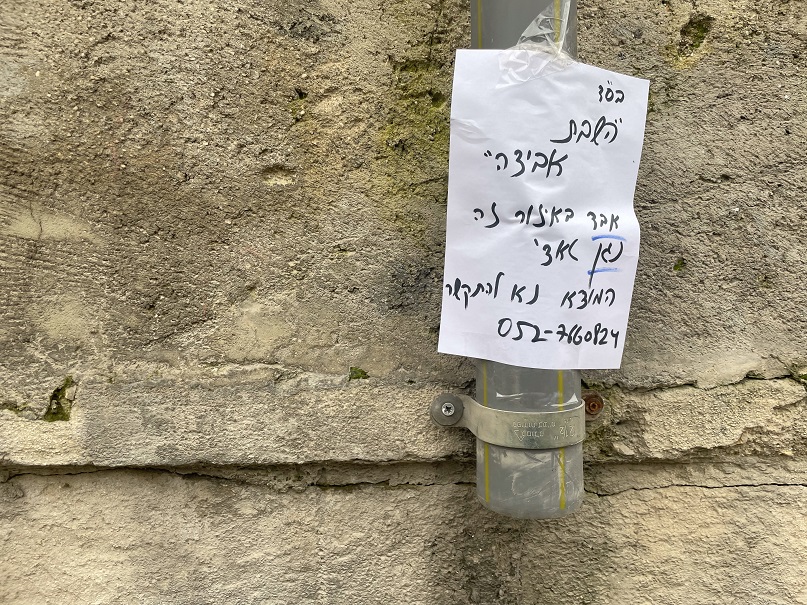 בס"ד
"השבת
אבידה"
אבד באיזור זה
נגן
המוצא נא להתקשר
052-7660824